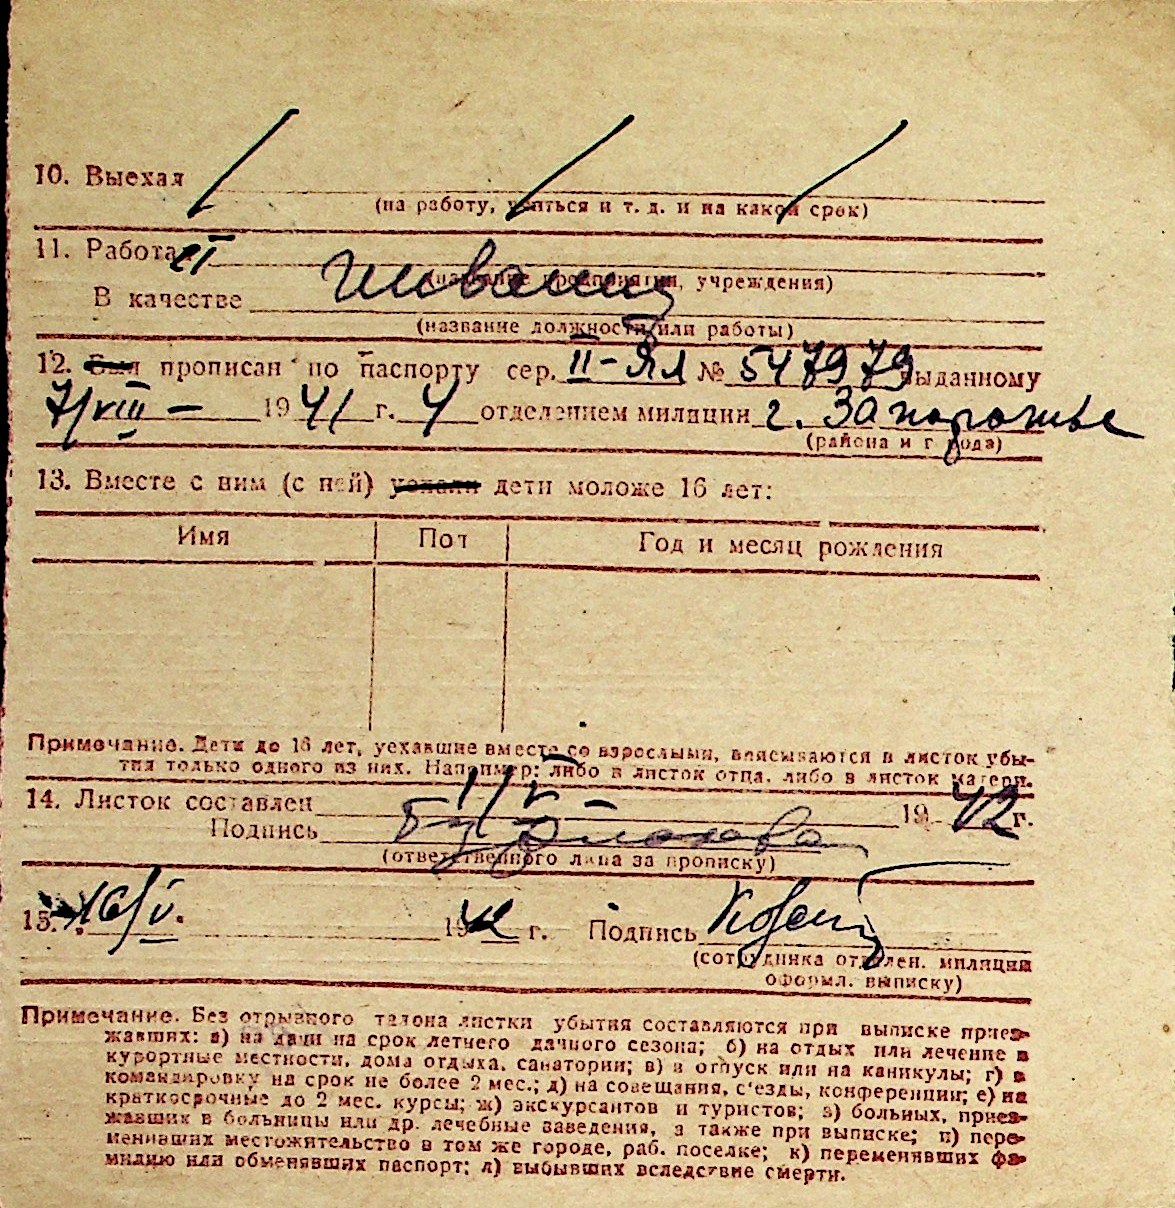 10. Выехал
(на работу, учиться и т. д. и на какой срок)
11. Работает
(название предприятия, учреждения)
В качестве
(название должности или работы)
12. Был прописан по паспорту сер. II-ЯЛ № 547979 выданному
7/VIII – 1941 г. 4 отделением милиции г. Запорожье
(района и города)
13. Вместе с ним (с ней) уехали дети моложе 16 лет:
Имя Пол Год и месяц рождения
Примечание. Дети до 16 лет, уехавшие вместе со взрослыми, вписываются в листок убы-
тия только одного из них. Например: либо в листок отца, либо в листок матери.
14. Листок составлен 1/V – 1942 г.
Подпись
(ответственного лица за прописку)
15. 16/V. 1942 г. Подпись
(сотрудника отделен. милиции
оформл. выписку)
Примечание. Без отрывного талона листки убытия составляются при выписке приез-
жавших: а) на дачи на срок летнего дачного сезона; б) на отдых или лечение в
курортные местности, дома отдыха, санатории; в) в отпуск или на каникулы; г) в
командировку на срок не более 2 мес.; д) на совещания, с'езды, конференции; е) на
краткосрочные до 2 мес. курсы; ж) экскурсантов и туристов; з) больных, приез-
жавших в больницы или др. лечебные заведения, а также при выписке; и) пере-
менивших местожительство в том же городе, раб. поселке; к) переменивших фа-
милию или обменявших паспорт; л) выбывших вследствие смерти.